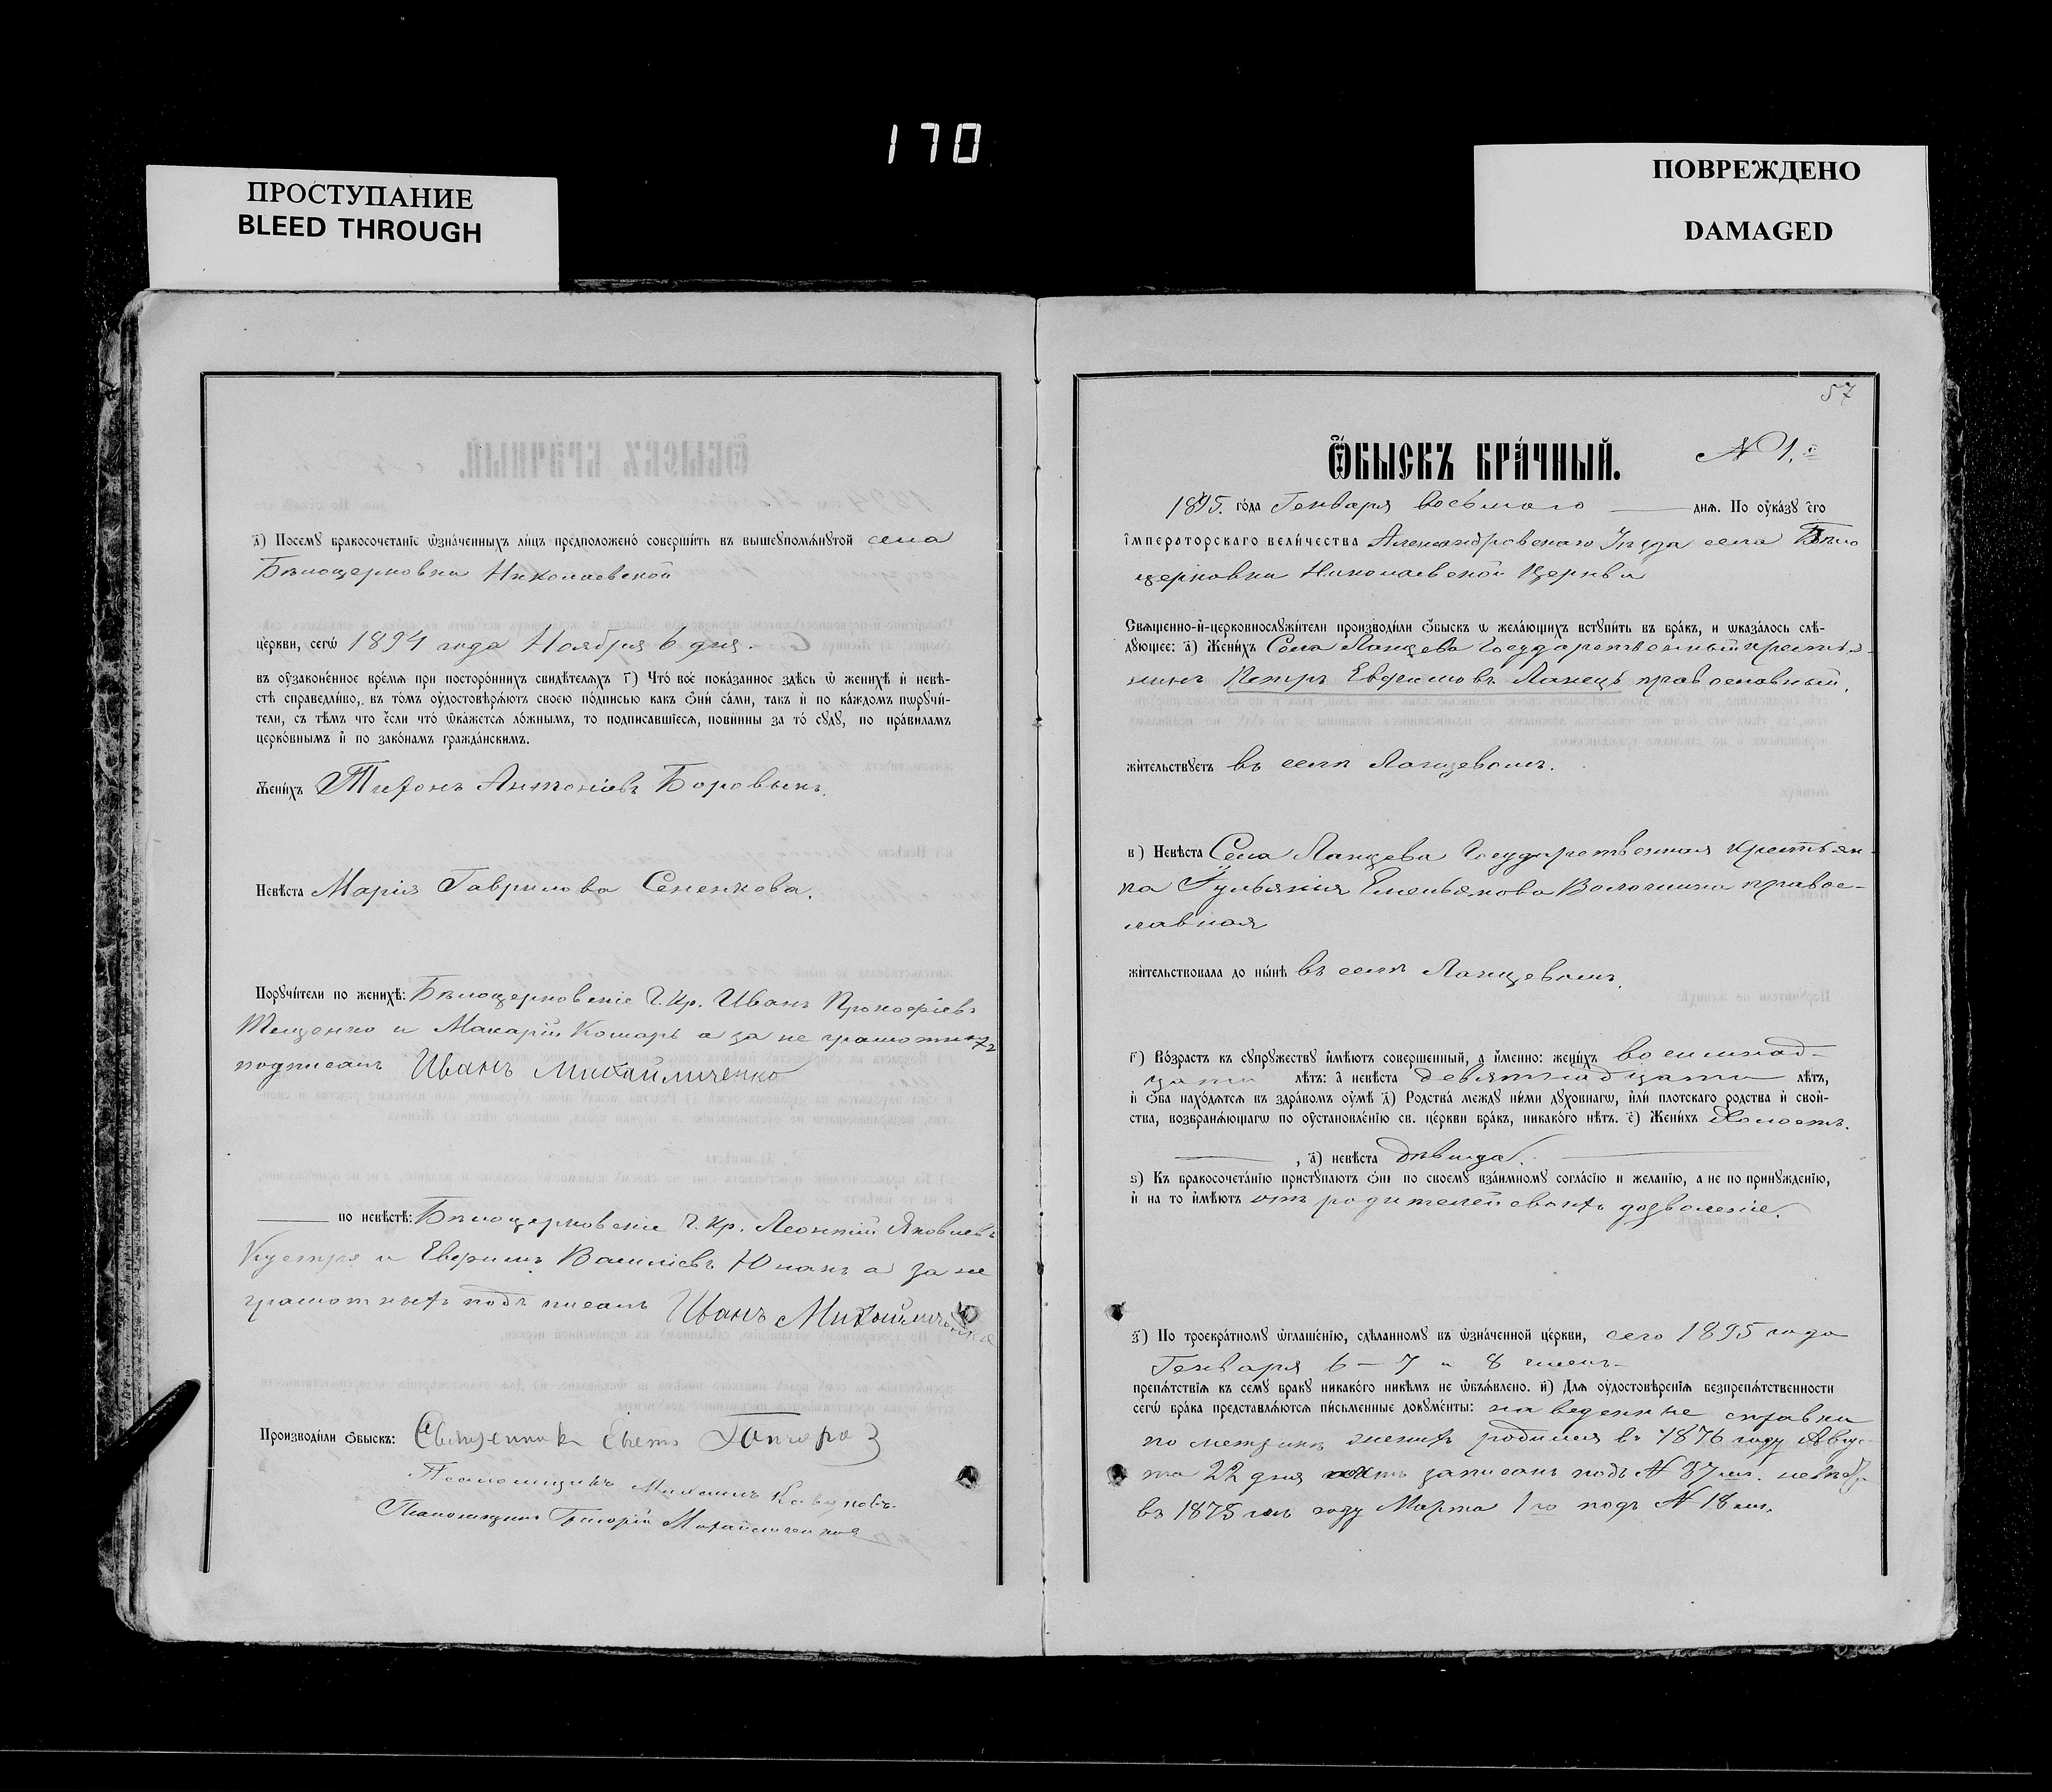 170
ПРОСТУПАНИЕ
BLEED THROUGH
ПОВРЕЖДЕНО
DAMAGED
д҃) Посемꙋ бракосочетанїе ѡзна́ченныхъ ли́цъ предположено́ соверши́ть въ вышеупомѧ́нутой села
Бѣлоцерковки Николаевской
це́ркви, сегѡ̀ 1894 года Ноября 6 дня.
въ оу҆зако́ненное вре́мѧ при посторо́ннихъ свидѣ́телѧхъ г҃) Что́ всѐ пока́занное здѣ́сь ѡ҆ женихѣ̀ и҆ невѣ́-
стѣ справедли́во, въ то́мъ оу҆достовѣрѧ́ютъ своею по́дписью какъ ѻ҆нѝ са́ми, такъ и҆ по ка́ждомъ пѡрꙋчи́-
тели, съ тѣ́мъ что є҆́сли что́ ѡ҆ка́жетсѧ ло́жнымъ, то подписавші́есѧ, пови́нны за то́ сꙋ́дꙋ, по пра́виламъ
церко́внымъ и҆ по зако́намъ гражда́нскимъ.
Жени́хъ Тихонъ Антоніевъ Боровыкъ.
Невѣ́ста Марія Гаврилова Сененкова.
Порꙋчи́тели по женихѣ̀: Бѣлоцерковскіе Г. Кр. Иванъ Прокофіевъ
Тещенко и Макарій Кошарь а за не грамотныхъ
подписалъ Иванъ Михайличенко
по невѣ́стѣ: Бѣлоцерковскіе Г. Кр. Леонтій Яковлевъ
и Евфимъ Василіевъ Юнакъ а за не
грамотныхъ подъ писалъ Иванъ Михайличенко
Производи́ли ѻ҆́быскъ: Священник
Псаломщикъ Михаилъ
Псаломщикъ Григорій
57
Ѻ҆́БЫСКЪ БРА́ЧНЫЙ. N 1.й
1895. го́да Генваря восьмаго днѧ. По оу҆ка́зꙋ є҆гѡ
і҆мператорскаго вели́чества Александровскаго Уѣзда села Бѣло
церковки Николаевской Церкви
Свѧще́нно-и҆-церковнослꙋжи́тели производи́ли ѻ҆́быскъ ѡ жела́ющихъ встꙋпи́ть въ бра́къ, и ѡ҆каза́лось слѣ́-
дꙋющее: а҃) Жени́хъ Села Ланцева Государственный крестья-
нинъ Петръ Евфимовъ Ланецъ православный,
жи́тельствꙋетъ въ селѣ Ланцевомъ.
в҃) Невѣ́ста Села Ланцева Государственная крестьян-
ка Гульянія Емельянова Волошина правос-
лавная
жи́тельствовала до ны́нѣ въ селѣ Ланцевомъ.
г҃) Во́зрастъ къ сꙋпрꙋ́жествꙋ и҆мѣ́ютъ соверше́нный, а и҆́менно: жени́хъ восимнад-
цати лѣ́тъ: а҆ невѣ́ста девятнадцати лѣ́тъ,
и҆ ѻ҆́ба нахо́дѧтсѧ въ здра́вомъ оу҆мѣ̀ д҃) Родства̀ междꙋ ни́ми дꙋхо́внагѡ, и҆лѝ плотска́го родства̀ и҆ свой-
ства, возбранѧ́ющагѡ по оу҆становле́нію св. це́ркви бра́къ, никако́го нѣ́тъ. є҃) Жени́хъ Холостъ.
, а҆) невѣ́ста дѣвица.
ѕ҃) Къ бракосочета́нію пристꙋпа́ютъ ѻ҆нѝ по своемꙋ взаи́мномꙋ согла́сїю и жела́нїю, а не по принꙋжде́нїю,
и҆ на то и҆мѣ́ютъ отъ родителей своихъ дозволеніе.
з҃) По троекра́тномꙋ ѡ҆глаше́нїю, сдѣ́ланномꙋ въ ѡ҆зна́ченной це́ркви, сего 1895 года
Генваря 6 – 7 и 8 чиселъ
препѧ́тствїѧ къ семꙋ̀ бракꙋ никако́го никѣ́мъ не ѡ҆бъѧ́влено. и҃) Длѧ оу҆достовѣ́ренїѧ безпрепѧ́тственности
сегѡ̀ бра́ка представлѧ́ютсѧ пи́сьменные докꙋме́нты: на веденные справки
по метрикѣ женихъ родился въ 1876 году Авгус-
та 22 дня записанъ подъ N 87мъ. невѣста
въ 1875 мъ году Марта 1го подъ N 18мъ.